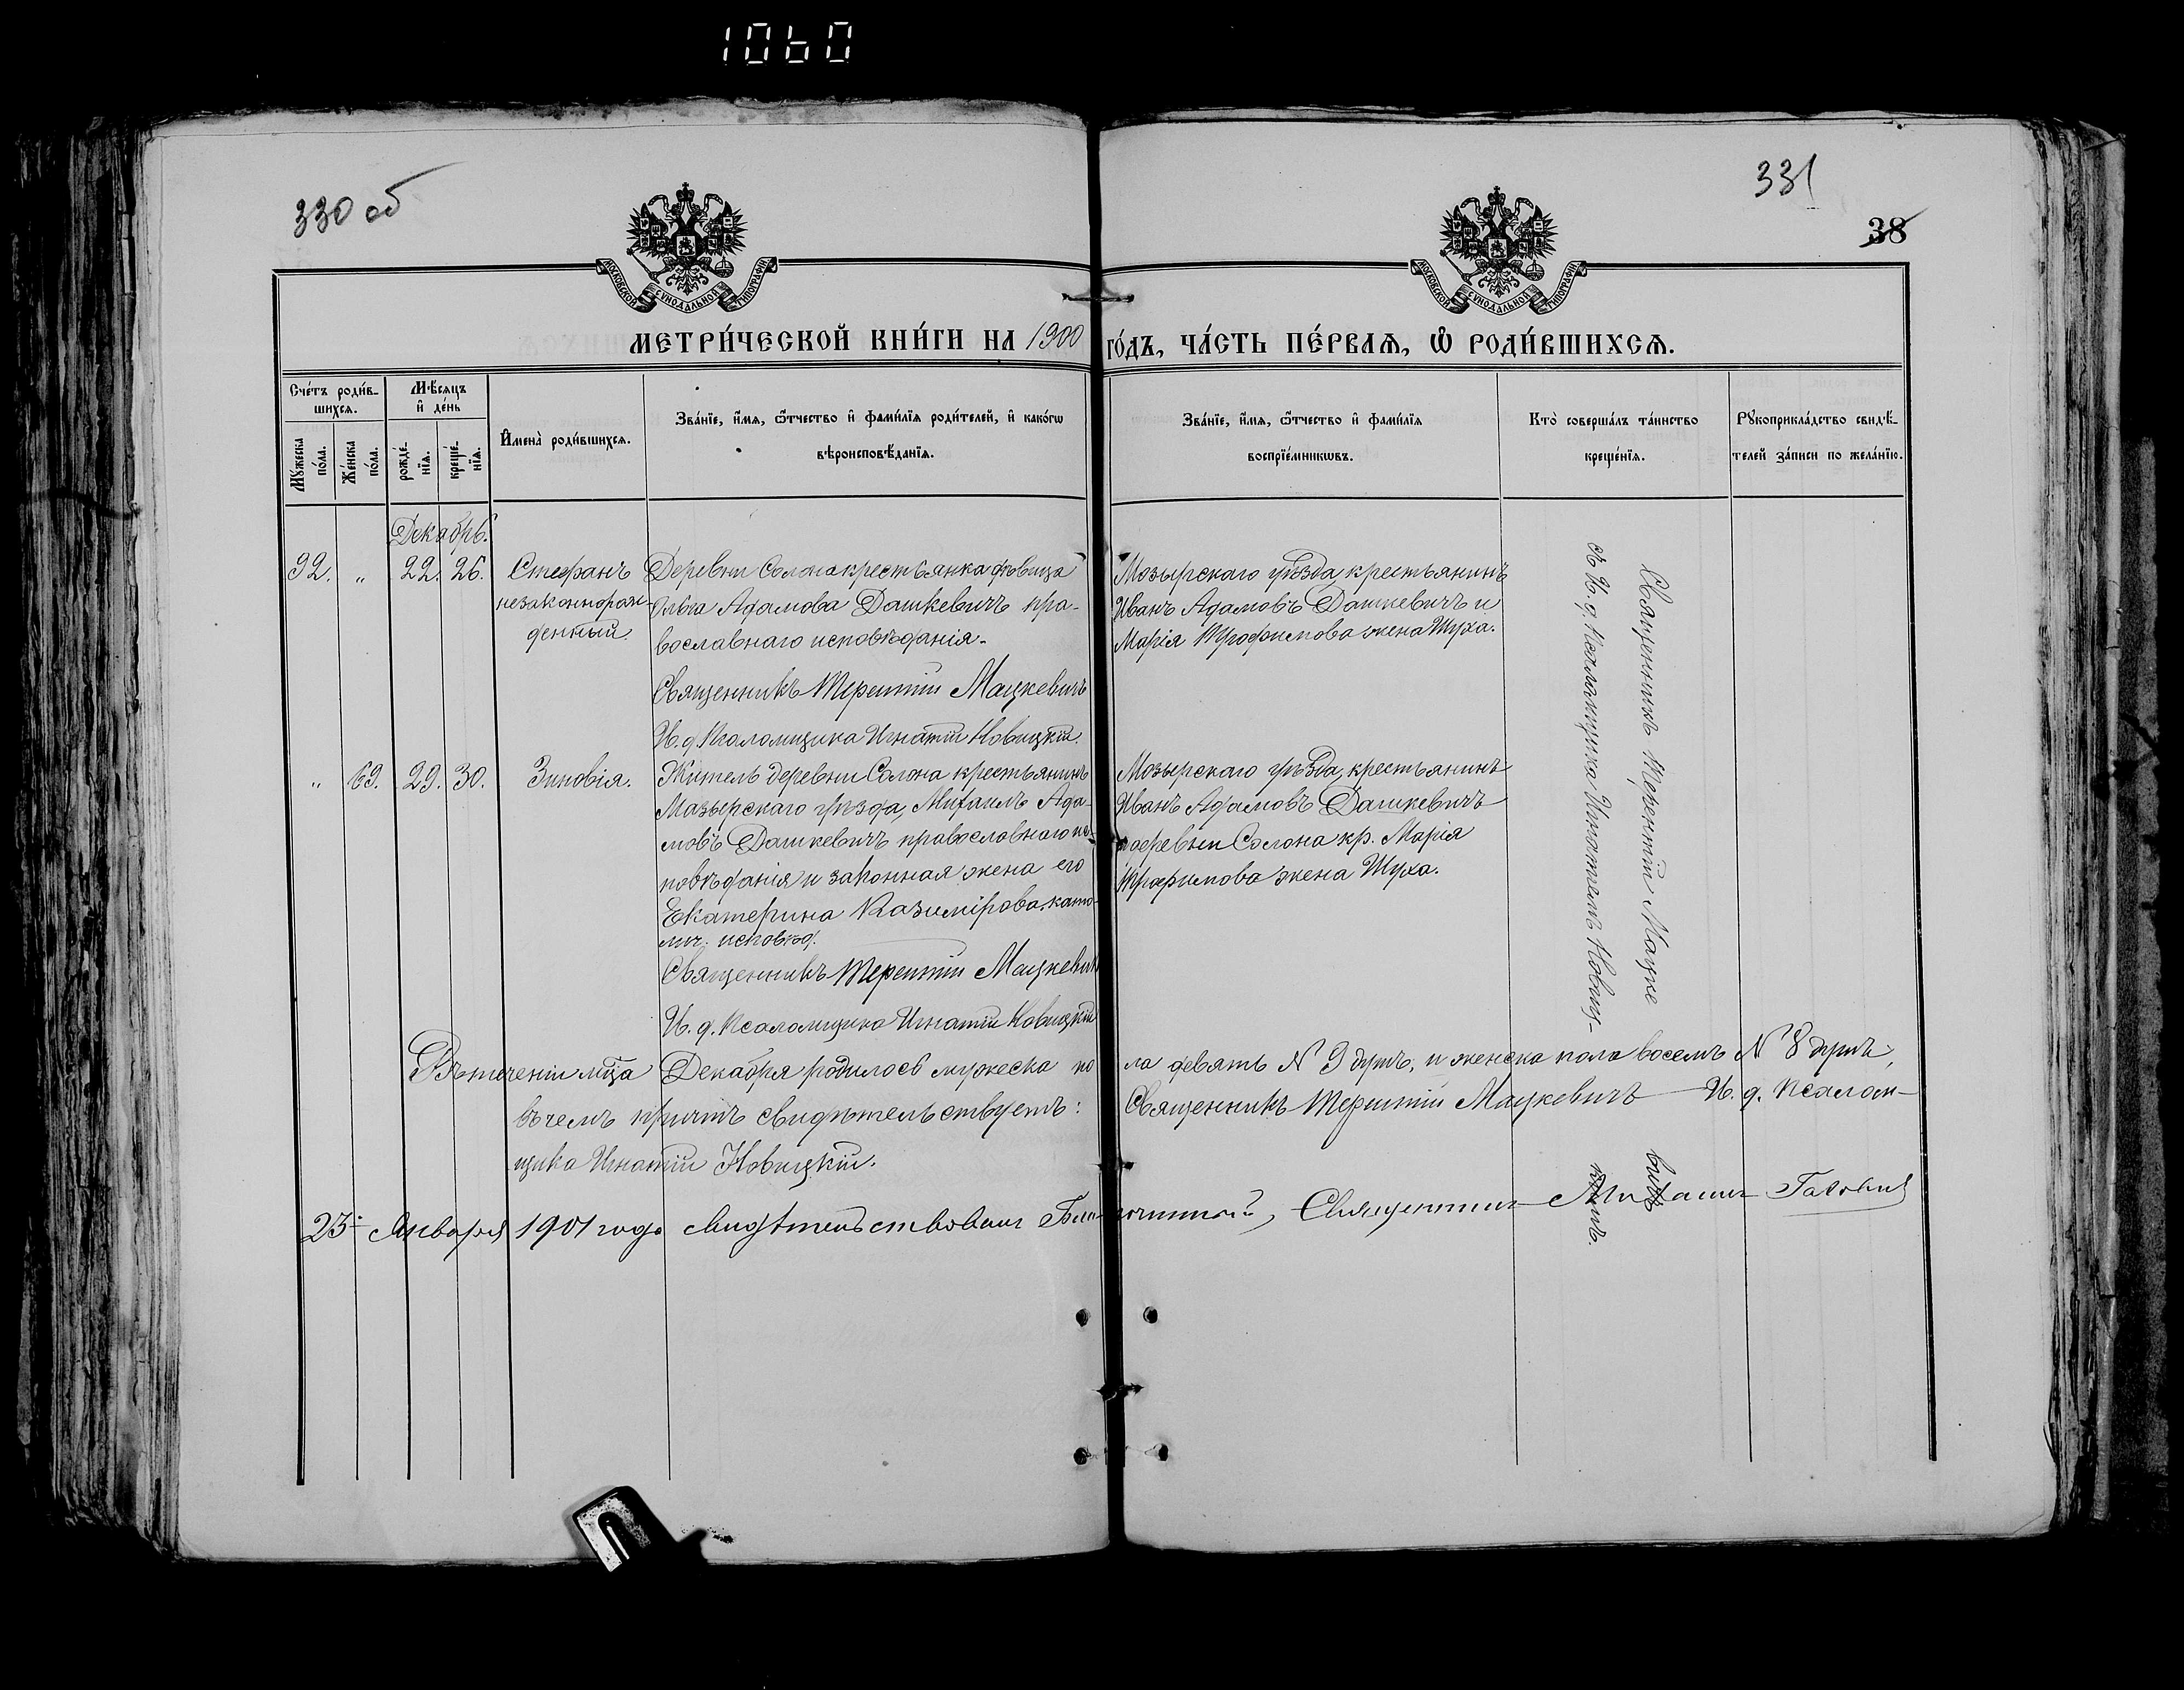 1060
330 об
331
38
МОСКОВСКОЙ СѴНОДАЛЬНОЙ ТИПОГРАФІИ
МОСКОВСКОЙ СѴНОДАЛЬНОЙ ТИПОГРАФІИ
МЕТРИ́ЧЕСКОЙ КНИ́ГИ НА 1900 ГО́ДЪ, ЧА́СТЬ ПЕ́РВАѦ, Ѽ РОДИ́ВШИХСѦ.
Сче́тъ роди́в-
шихсѧ.
Мѣ́сѧцъ
и҆ де́нь
Мꙋ́жеска
по́ла.
Же́нска
по́ла.
рожде́-
нїѧ.
креще́-
нїѧ.
И҆мена̀ роди́вшихсѧ.
Зва́нїе, и҆́мѧ, ѻ҆́тчество и҆ фами́лїѧ роди́телей, и҆ како́гѡ
вѣроисповѣ́данїѧ.
Зва́нїе, и҆́мѧ, ѻ҆́тчество и҆ фами́лїѧ
воспрїе́мникѡвъ.
Кто̀ соверша́лъ та́инство
креще́нїѧ.
Рꙋкоприкла́дство свидѣ́-
телей за́писи по жела́нїю.
Декабрь.
92. " 22. 26. Стефанъ
незаконнорож-
денный.
Деревни Солона крестьянка девица
Ольга Адамова Дашкевичъ пра-
вославнаго исповѣданія.
Священникъ Терентій Мацкевичъ
И. д. Псаломщика Игнатій Новицкій.
Мозырскаго уѣзда, крестьянинъ
Иванъ Адамовъ Дашкевичъ и
Марія Трофимова жена Шуха.
" 69. 29. 30. Зиновія.
Житель деревни Солона крестьянинъ
Мозырскаго уѣзда, Михаилъ Ада-
мовъ Дашкевичъ православнаго ис-
повѣданія и законная жена его
Екатерина Казимірова, като-
лич. исповѣд.
Священникъ Терентій Мацкевичъ
И. д. Псаломщика Игнатій Новицкій
Мозырскаго уѣзда, крестьянинъ
Иванъ Адамовъ Дашкевичъ
и деревни Солона кр. Марія
Трофимова жена Шуха.
Священникъ Терентій Мацке
вичъ
съ И. д. Псаломщика Игнатіемъ Новиц-
кимъ.
Въ теченіи мца Декабря родилось мужеска по ла девять N 9 душъ, и женска пола восемь N 8 душъ;
въ чемъ причтъ свидѣтельствуетъ: Священникъ Терентій Мацкевичъ И. д. Псалом-
щика Игнатій Новицкій.
23 Января 1901 года свидѣтельствовалъ Благочинный, Священникъ Михаилъ